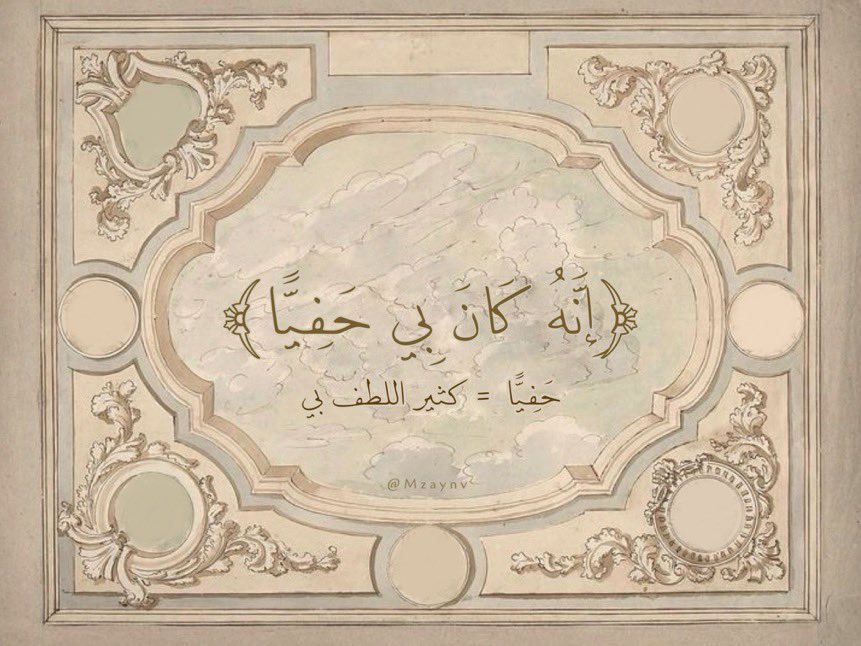 ﴿إِنَّهُ كَانَ بِي حَفِيًّا﴾
حَفِيًّا = كثير اللطف بي
@Mzaynv